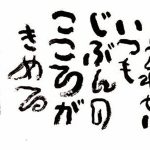 いつも
じぶんの
こころが
きめる